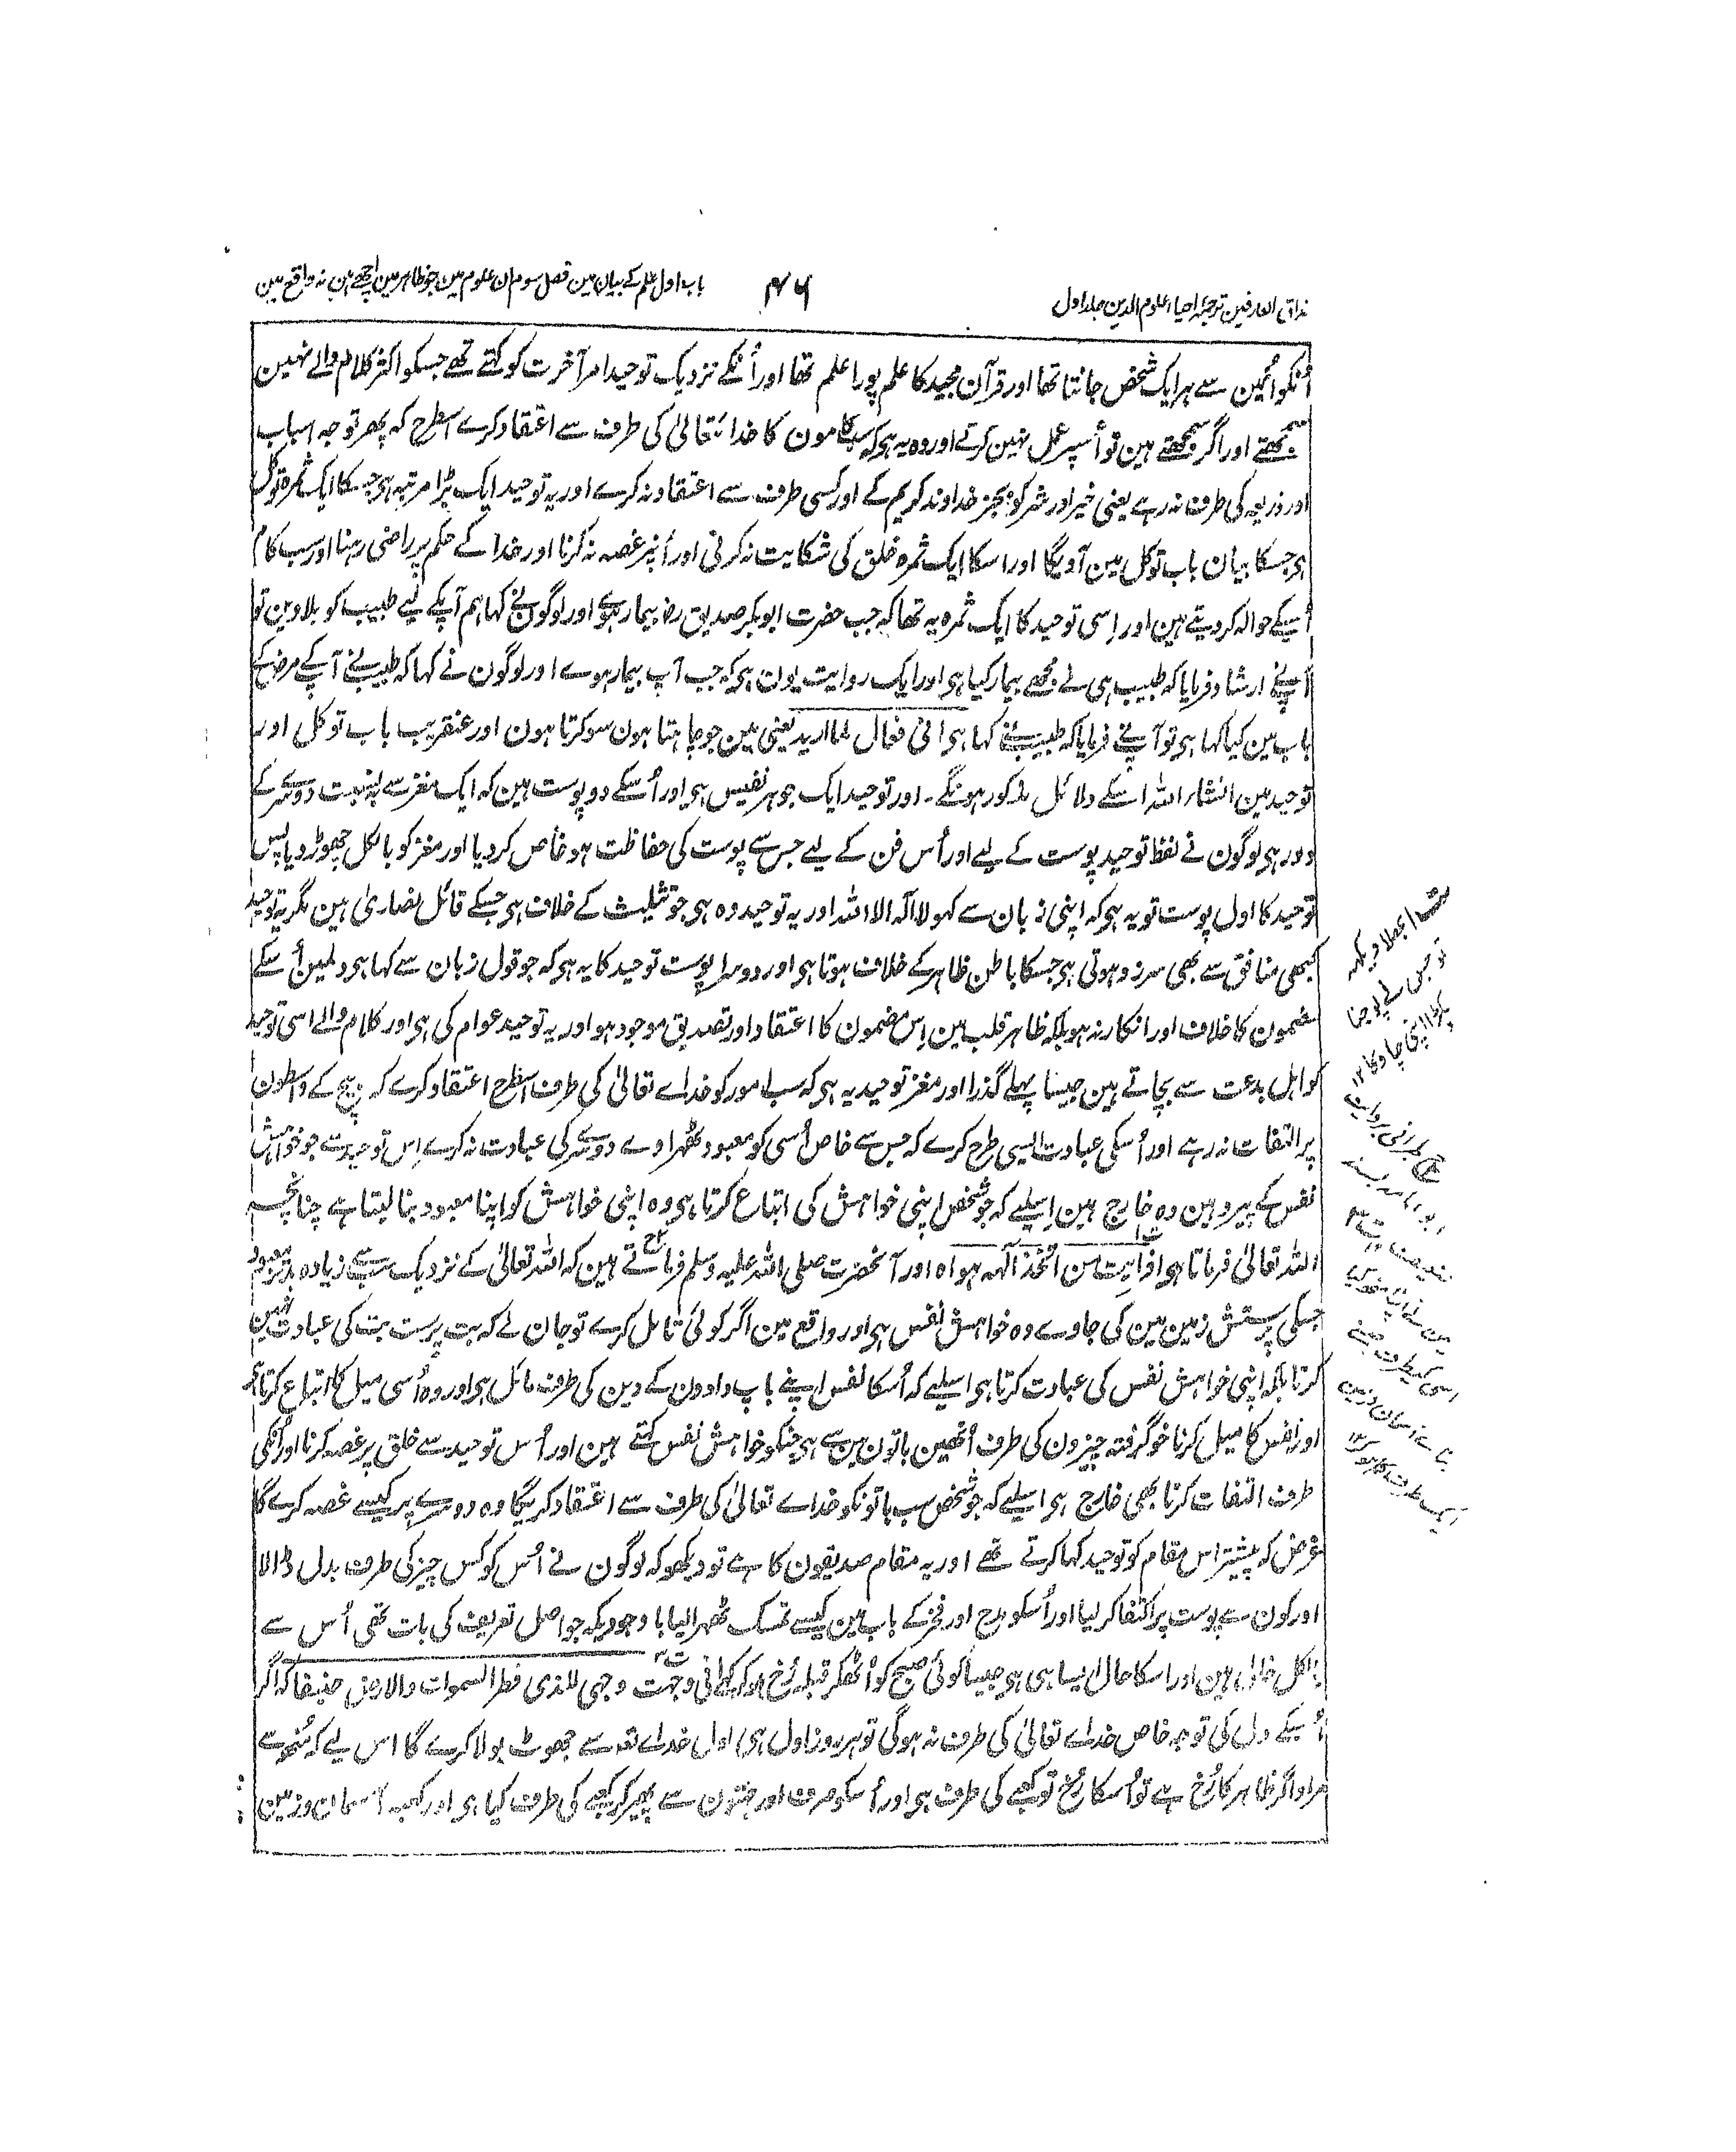 مذاق العارفین ترجمۂ احیاء علوم الدین جلد اول
۴۶
باب اول علم کے بیان مین فصل سوم ان علوم مین جو ظاہر مین اچھے ہین نہ واقع مین
اُنکو اُنمین سے ہر ایک شخص جانتا تھا اور قرآن مجید کا علم پورا علم تھا اور اُنکے نزدیک توحید امر آخرت کو کہتے تھے جسکو اکثر کلام والے نہین
سمجھتے اور اگر سمجھتے ہین تو اُسپر عمل نہین کرتے اور وہ یہ ہی کہ سب کامون کا خدا تعالیٰ کی طرف سے اعتقاد کرے اسطرح کہ پھر توجہ اسباب
اور ذریعہ کی طرف نہ رہے یعنی خیر اور شر کو بجز خداوند کریم کے اور کسی طرف سے اعتقاد نہ کرے اور یہ توحید ایک بڑا مرتبہ ہی جسکا ایک ثمرہ توکل
ہی جسکا بیان باب توکل مین آویگا اور اسکا ایک ثمرہ خلق کی شکایت نہ کرنی اور اُنپر غصہ نہ کرنا اور خدا کے حکم پر راضی رہنا اور سب کام
اُسیکے حوالہ کر دیتے ہین اور اِسی توحید کا ایک ثمرہ یہ تھا کہ جب حضرت ابوبکر صدیق رض بیمار ہوے اور لوگونے کہا ہم آپکے لیے طبیب کو بلاوین تو
آپنے ارشاد فرمایا کہ طبیب ہی نے مجھے بیمار کیا ہی اور ایک روایت یون ہی کہ جب آپ بیمار ہوے اور لوگون نے کہا کہ طبیبنے آپ کے مرض کے
باب مین کیا کہا ہی تو آپنے فرمایا کہ طبیبنے کہا ہی انی فعال لما ارید یعنی مین جو چاہتا ہون سو کرتا ہون اور عنقریب باب توکل اور
توحید مین انشاء اللہ اسکے دلائل مذکور ہونگے۔ اور توحید ایک جوہر نفیس ہی اور اُسکے دو پوست ہین کہ ایک مغز سے بہ نسبت دوسرے کے
دور ہی لوگون نے لفظ توحید پوست کے لیے اور اُس فن کے لیے جس سے پوست کی حفاظت ہو خاص کر دیا اور مغز کو بالکل چھوڑ دیا پس
توحید کا اول پوست تو یہ ہی کہ اپنی زبان سے کہو لا آلہ الا اللہ اور یہ توحید وہ ہی جو تثلیث کے خلاف ہی جسکے قائل نصاریٰ ہین مگر یہ توحید
کبھی منافق سے بھی سرزد ہوتی ہی جسکا باطن ظاہر کے خلاف ہوتا ہی اور دوسرا پوست توحید کا یہ ہی کہ جو قول زبان سے کہا ہی دلمین اُسکے
مضمون کا خلاف اور انکار نہ ہو بلکہ ظاہر قلب مین اِس مضمون کا اعتقاد اور تصدیق موجود ہو اور یہ توحید عوام کی ہی اور کلام والے اسی توحید
کو اہل بدعت سے بچاتے ہین جیسا پہلے گذرا اور مغز توحید یہ ہی کہ سب امور کو خداے تعالیٰ کی طرف اسطرح اعتقاد کرے کہ بیچ کے واسطون
پر التفات نہ رہے اور اُسکی عبادت ایسی طرح کرے کہ جس سے خاص اُسی کو معبود ٹھہراوے دوسرے کی عبادت نہ کرے اِس توحید سے جو خواہش
نفس کے پیرو ہین وہ خارج ہین اِسلیے کہ جو شخص اپنی خواہش کی اتباع کرتا ہی وہ اپنی خواہش کو اپنا معبود بنا لیتا ہے چنانچہ
اللہ تعالیٰ فرماتا ہی افرأیت من اتخذ آلٰہہ ہواہ اور آنحضرت صلی اللہ علیہ وسلم فرماتے ہین کہ اللہ تعالیٰ کے نزدیک سب سے زیادہ بدتر معبود
جسکی پرستش زمین مین کی جاوے وہ خواہش نفس ہی اور واقع مین اگر کوئی تامل کرے تو جان لے کہ بت پرست بت کی عبادت نہین
کرتا بلکہ اپنی خواہش نفس کی عبادت کرتا ہی اسلیے کہ اُسکا نفس اپنے باپ دادون کے دین کی طرف مائل ہی اور وہ اُسی میل کا اتباع کرتا ہی
اور نفس کا میل کرنا خوگرفتہ چیزون کی طرف اُنھین باتون مین سے ہی جنکو خواہش نفس کہتے ہین اور اُس توحید سے خلق پر غصہ کرنا اور اُنکی
طرف التفات کرنا بھی خارج ہی اسلیے کہ جو شخص سب باتونکو خداے تعالیٰ کی طرف سے اعتقاد کریگا وہ دوسرے پر کیسے غصہ کرے گا
غرض کہ پیشتر اس مقام کو توحید کہا کرتے تھے اور یہ مقام صدیقون کا ہے تو دیکھو کہ لوگون نے اُس کو کس چیز کی طرف بدل ڈالا
اور کون سے پوست پر اکتفا کر لیا اور اُسکو مدح اور فخر کے باب مین کیسے تمسک ٹھہرا لیا با وجودیکہ جو اصل تعریف کی بات تھی اُس سے
بالکل خالی ہین اور اسکا حال ایسا ہی ہی جیسا کوئی صبح کو اُٹھکر قبلہ رُخ ہو کر کہے انی وجہت وجہی للذی فطر السموات والارض حنیفا کہ اگر
اُسکے دل کی توجہ خاص خداے تعالیٰ کی طرف نہ ہوگی تو ہر روز اول ہی اول خداے تعہ سے جھوٹ بولا کرے گا اس لیے کہ مُنھ سے
مراد اگر ظاہر کا رُخ ہے تو اُسکا رُخ تو کعبے کی طرف ہی اور اُسکو صرف اور جہتون سے پھیر کر کعبے کی طرف کیا ہی اور کعبہ آسمان و زمین
بھلا دیکھ
تو جس نے پوجنا
پکڑا اپنی چاو کا ۱۲
طبرانی بروایت
ابو امامہ بسند
ضعیف ۱۲
مین نے اپنا منھ کیا
اسی کیطرف جسنے
بنائے آسمان و زمین
ایک طرف کا ہو کر ۱۲